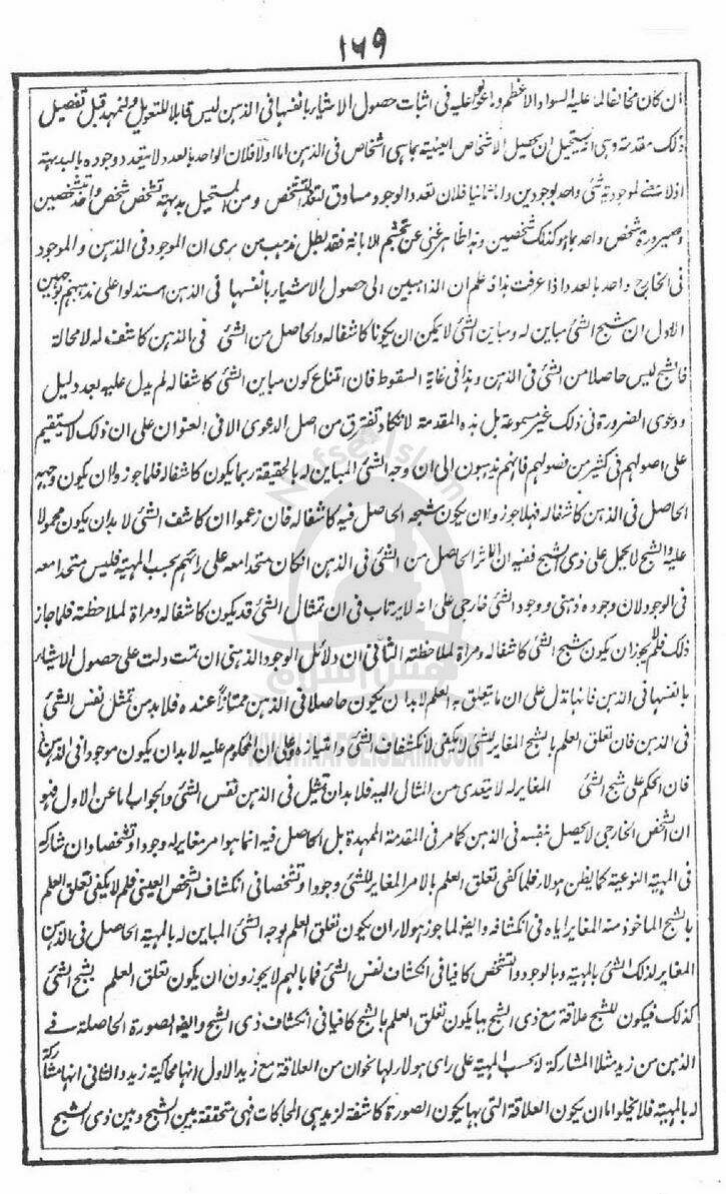 ١٦٩
ان كان مخالفا لما عليه السواد الاعظم وما عولوا عليه فى اثبات حصول الاشياء بانفسها فى الذهن ليس قابلا للتعويل ولنمهد قبل تفصيل
ذلك مقدمة وهى انه يستحيل ان يحصل الاشخاص العينية بما هى اشخاص فى الذهن اما اولا فلان الواحد بالعدد لا يتعدد وجوده بالبديهة
اذ لا معنى لموجودية شئ واحد بوجودين واما ثانيا فلان تعدد الوجود مساوق لتعدد التشخص ومن المستحيل بديهة تشخص شخص واحد بتشخصين
وصيرورة شخص واحد بما هو كذلك شخصين وهذا ظاهر غنى عن تجشم الابانة فقد بطل مذهب من يرى ان الموجود فى الذهن والموجود
فى الخارج واحد بالعدد اذا عرفت هذا فاعلم ان الذاهبين الى حصول الاشياء بانفسها فى الذهن استدلوا على مذهبهم بوجهين
الاول ان شبح الشئ مباين له ومباين الشئ لا يمكن ان يكون كاشفا له والحاصل من الشئ فى الذهن كاشف له لا محالة
فالشبح ليس حاصلا من الشئ فى الذهن وهذا فى غاية السقوط فان امتناع كون مباين الشئ كاشفا له لم يدل عليه بعد دليل
ودعوى الضرورة فى ذلك غير مسموعة بل هذه المقدمة لا تكاد تفترق من اصل الدعوى الا فى العنوان على ان ذلك لا يستقيم
على اصولهم فى كثير من فصولهم فانهم يذهبون الى ان وجه الشئ المباين له بالحقيقة ربما يكون كاشفا له فلما جوزوا ان يكون وجهه
الحاصل فى الذهن كاشفا له فهلا جوزوا ان يكون شبحه الحاصل فيه كاشفا له فان زعموا ان كاشف الشئ لا بد ان يكون محمولا
عليه والشبح لا يحمل على ذى الشبح ففيه ان الامر الحاصل من الشئ فى الذهن ان كان متحدا معه على رائهم بحسب المهية فليس متحدا معه
فى الوجود لان وجوده ذهنى ووجود الشئ خارجى على انه لا يرتاب فى ان تمثال الشئ قد يكون كاشفا له ومراة لملاحظته فلما جاز
ذلك فلم لا يجوز ان يكون شبح الشئ كاشفا له ومراة لملاحظته الثانى ان دلائل الوجود الذهنى ان تمت دلت على حصول الاشياء
بانفسها فى الذهن فانها تدل على ان ما يتعلق به العلم لا بد ان يكون حاصلا فى الذهن ممتازا عنده فلا بد من تمثل نفس الشئ
فى الذهن فان تعلق العلم بالشبح المغاير للشئ لا يكفى لانكشاف الشئ وامتيازه وعلى ان المحكوم عليه لا بد ان يكون موجودا فى الذهن
فان الحكم على شبح الشئ المغاير له لا يتعدى من المثال اليه فلا بد ان تمثل فى الذهن نفس الشئ والجواب اما عن الاول فهو
ان الشخص الخارجى لا يحصل بنفسه فى الذهن كما مر فى المقدمة الممهدة بل الحاصل فيه انما هو امر مغاير له وجودا وتشخصا وان شاركه
فى المهية النوعية كما يظن هولاء فلما كفى تعلق العلم بالامر المغاير للشئ وجودا وتشخصا فى انكشاف الشخص العينى فلم لا يكفى تعلق العلم
بالشبح الماخوذ منه المغاير اياه فى انكشافه وايضا لما جوز هولاء ان يكون تعلق العلم بوجه الشئ المباين له بالمهية الحاصل فى الذهن
المغاير لذلك الشئ بالمهية وبالوجود والتشخص كافيا فى انكشاف نفس الشئ فما بالهم لا يجوزون ان يكون تعلق العلم بشبح الشئ
كذلك فيكون للشبح علاقة مع ذى الشبح بها يكون تعلق العلم بالشبح كافيا فى انكشاف ذى الشبح وايضا الصورة الحاصلة فى
الذهن من زيد مثلا المشاركة له بحسب المهية على راى هولاء لها نحوان من العلاقة مع زيد الاول انها محاكية زيد والثانى انها مشاركة
له بالمهية فلا يخلو اما ان يكون العلاقة التى بها يكون الصورة كاشفة لزيد هى المحاكات فهى متحققة بين الشبح وبين ذى الشبح
Nafse Islam
نفس اسلام
WWW.NAFSEISLAM.COM